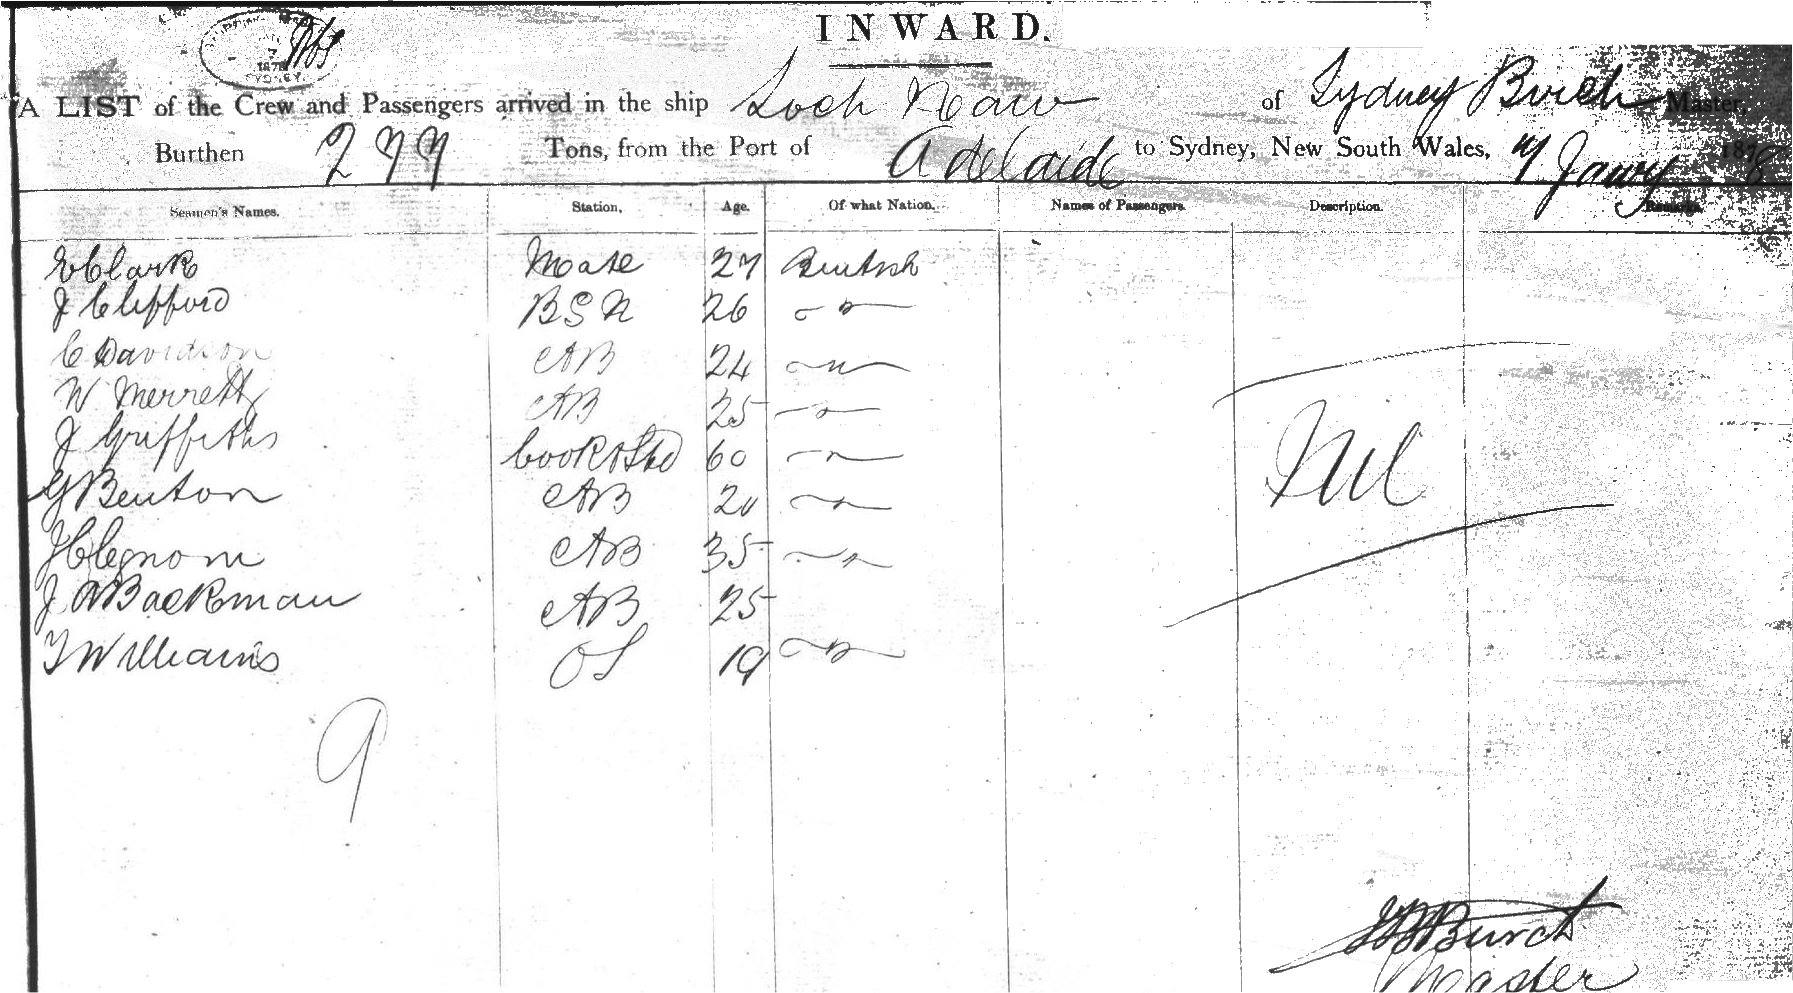 INWARD.
1878
SYDNEY
A LIST of the Crew and Passengers arrived in the ship Loch Naw of Sydney Burch Master,
Burthen 277 Tons, from the Port of Adelaide to Sydney, New South Wales, 7 Jany 1878
Seamen's Names. Station, Age. Of what Nation. Names of Passengers. Description. Remarks.
E Clark Mate 27 British
J Clifford BSN 26 - " -
C Davidson AB 24 - " -
W Merrett AB 25 - " -
J Griffiths Cook & Std 60 - " -
G Benton AB 20 - " -
AB 35 - " -
J A Backman AB 25
T Williams OS 19 - " -
Nil
9
Burch
Master